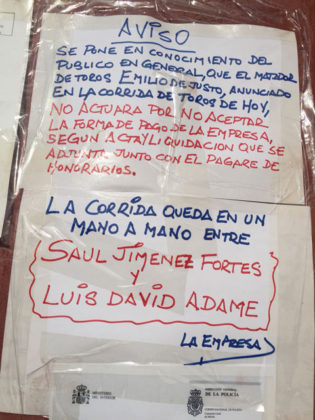 AVISO
SE PONE EN CONOCIMIENTO DEL
PUBLICO EN GENERAL, QUE EL MATADOR
DE TOROS EMILIO DE JUSTO, ANUNCIADO
EN LA CORRIDA DE TOROS DE HOY,
NO ACTUARA POR NO ACEPTAR
LA FORMA DE PAGO DE LA EMPRESA,
SEGÚN ACTA Y LIQUIDACION QUE SE
ADJUNTA JUNTO CON EL PAGARE DE
HONORARIOS.
LA CORRIDA QUEDA EN UN
MANO A MANO ENTRE
SAUL JIMENEZ FORTES
Y
LUIS DAVID ADAME
LA EMPRESA
MINISTERIO
DEL INTERIOR
DIRECCIÓN GENERAL
DE LA POLICÍA